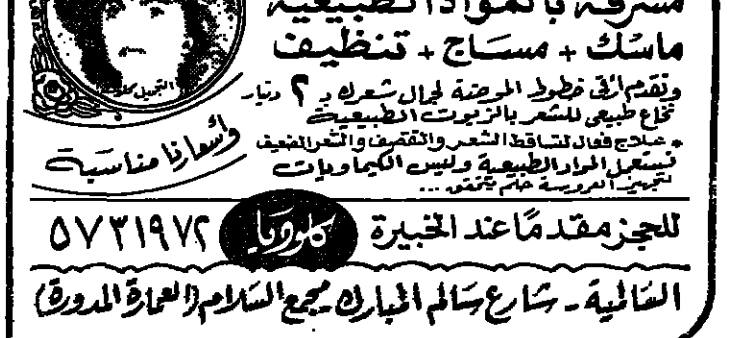 مشرقة بالمواد الطبيعية
ماسك + مساج + تنظيف
ونقدم أرقى خطوط الموضة لجمال شعرك بـ ٢ دينار
نخاع طبيعي للشعر بالزيوت الطبيعية
* علاج فعال لتساقط الشعر والتقصف والشعر الضعيف
نستعمل المواد الطبيعية وليس الكيماويات
لتجهيز العروسة حلم يتحقق ...
وأسعارنا مناسبة
للحجز مقدماً عند الخبيرة كلوديا ٥٧٣١٩٧٢
السالمية - شارع سالم المبارك - مجمع السلام (العمارة المدورة)